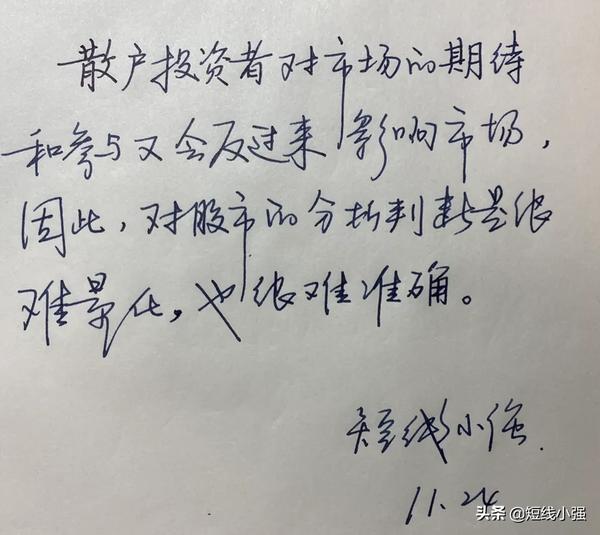 散户投资者对市场的期待
和参与又会反过来影响市场,
因此,对股市的分析判断是很
难量化,也很难准确。
短线小强
11.24
头条 @短线小强